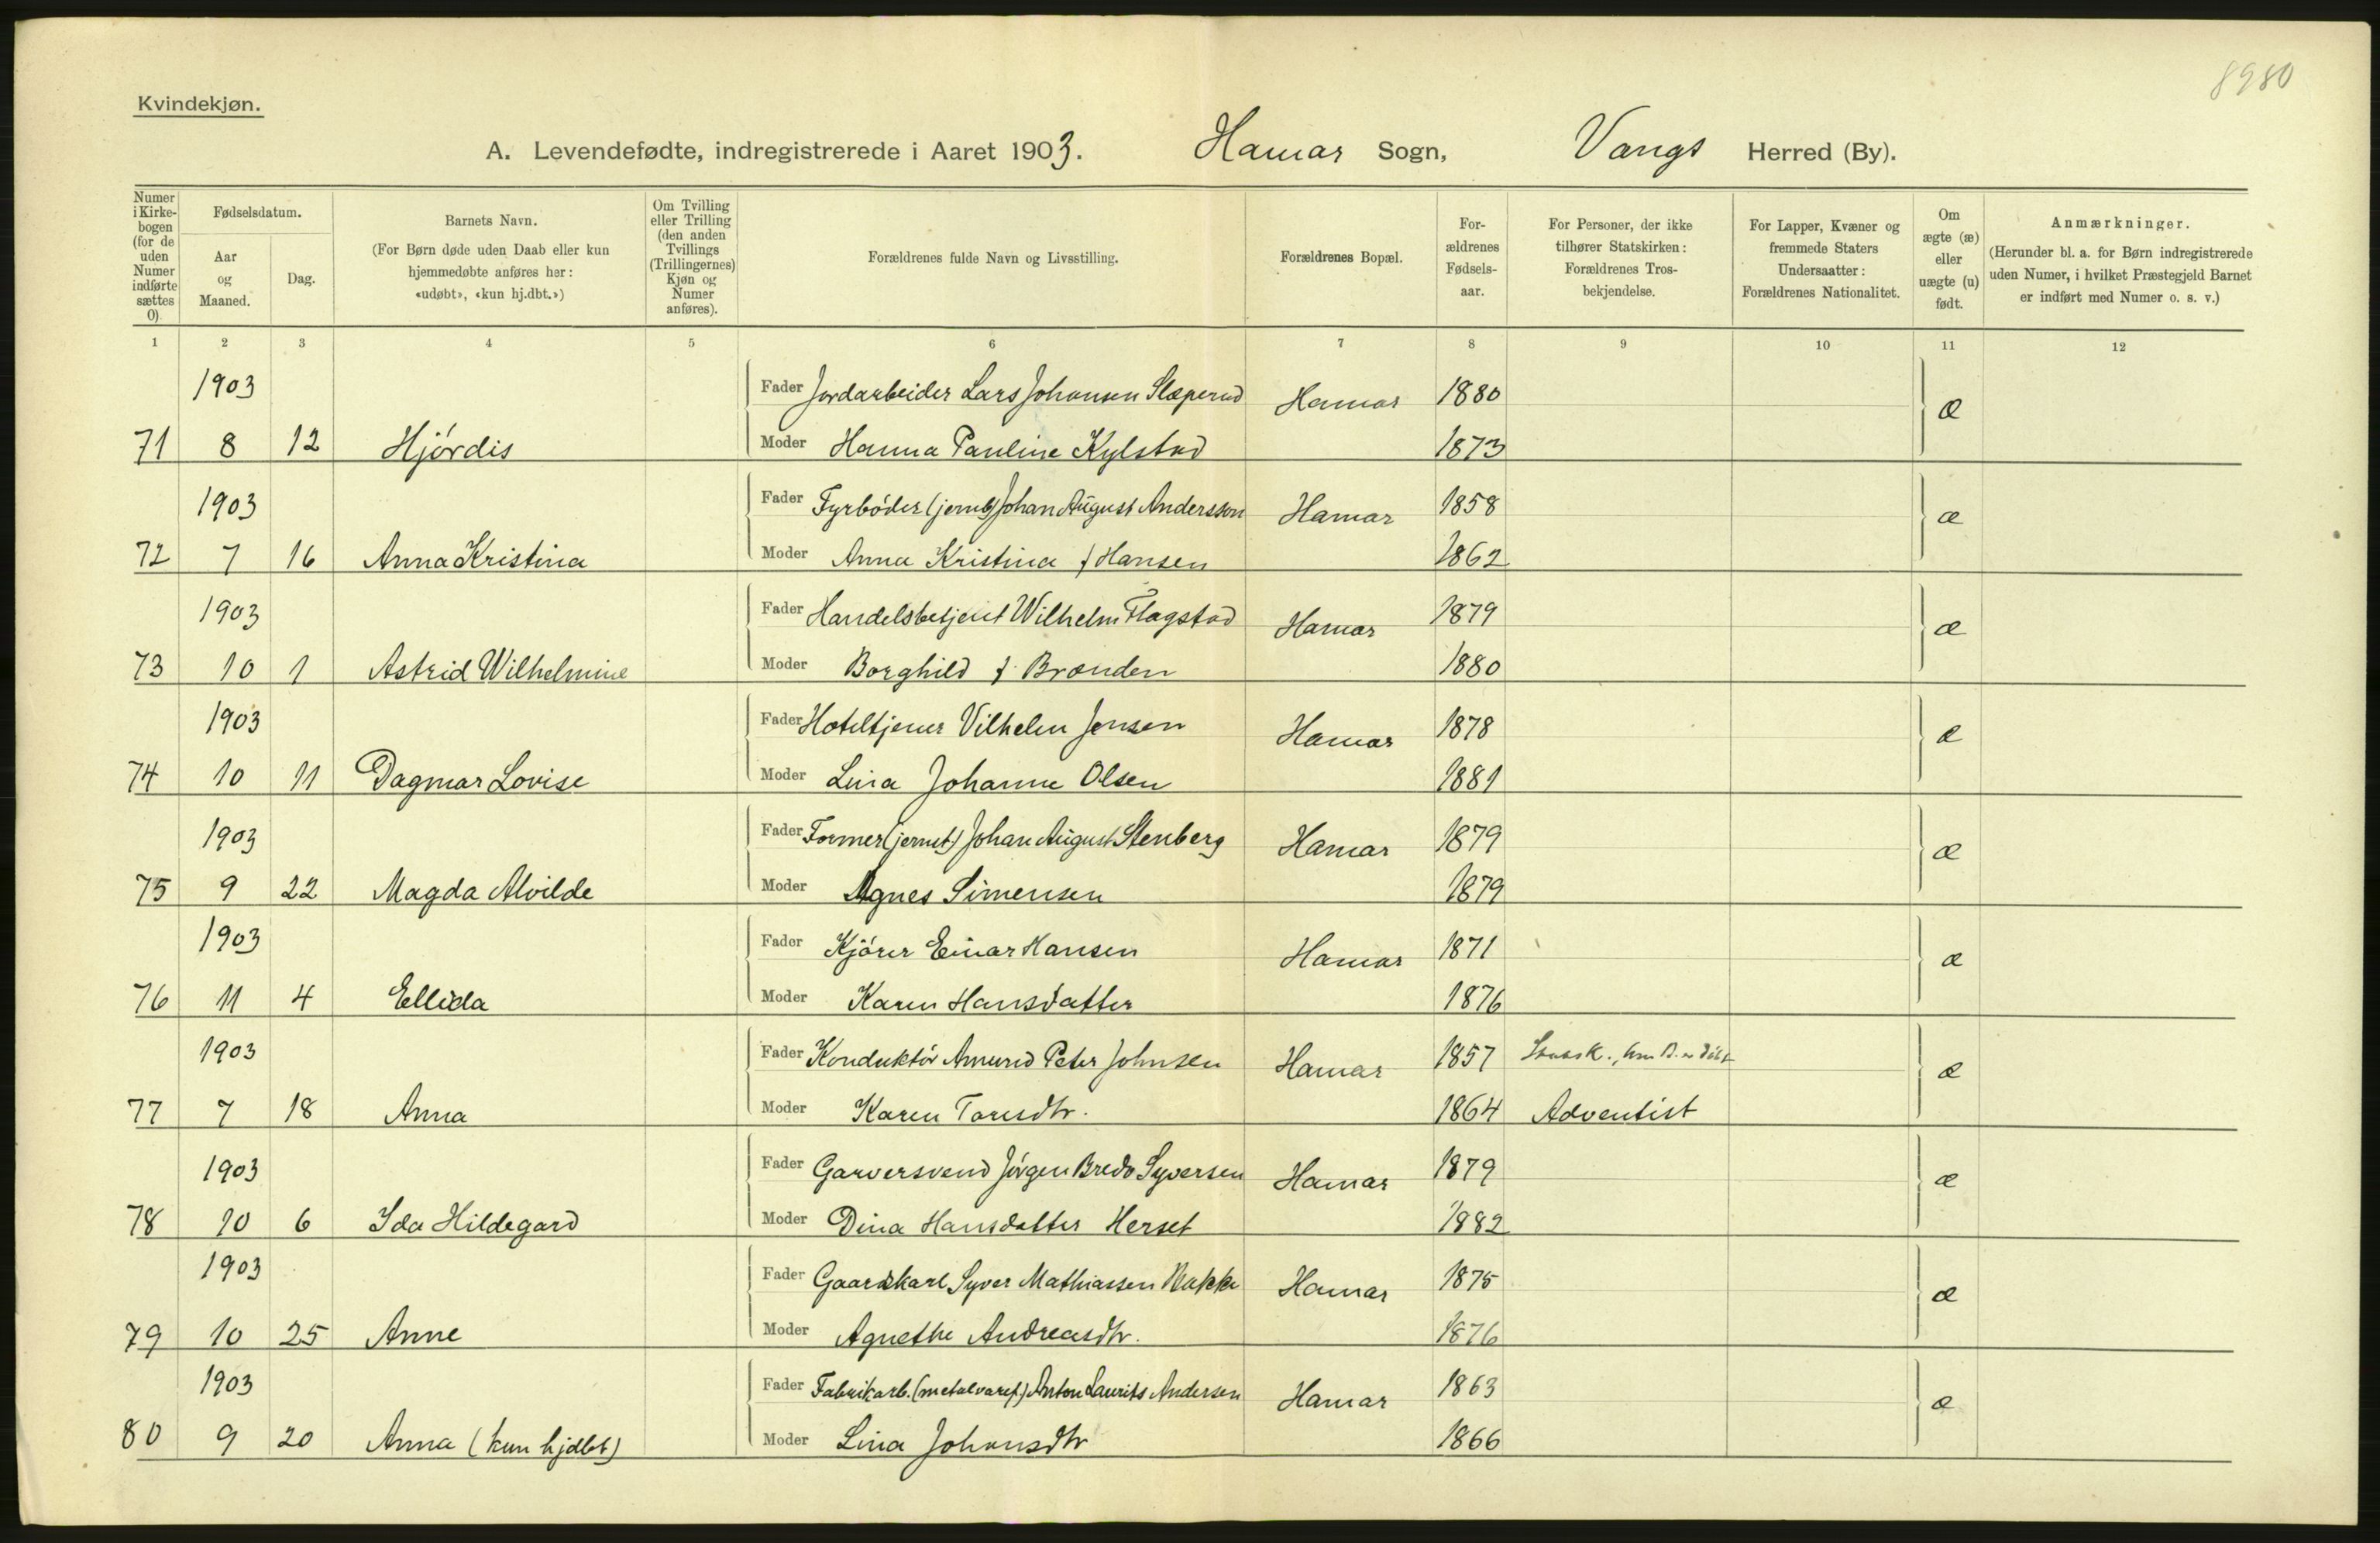 8980
Kvindekjøn.
A. Levendefødte, indregistrerede i Aaret 1903. Hamar Sogn, Vangs Herred (By).
Numer i Kirke-bogen (for de uden Numer indførte sættes 0)
Fødselsdatum.
Aar og Maaned.
Dag.
Barnets Navn.
(For Børn døde uden Daab eller kun hjemmedøbte anføres her: «udøbt», «kun hj.dbt.»)
Om Tvilling eller Trilling (den anden Tvillings (Trillingernes) Kjøn og Numer anføres).
Forældrenes fulde Navn og Livsstilling.
Forældrenes Bopæl.
For-ældrenes Fødsels-aar.
For Personer, der ikke tilhører Statskirken: Forældrenes Tros-bekjendelse.
For Lapper, Kvæner og fremmede Staters Undersaatter: Forældrenes Nationalitet.
Om ægte (æ) eller uægte (u) født.
Anmærkninger.
(Herunder bl. a. for Børn indregistrerede uden Numer, i hvilket Præstegjeld Barnet er indført med Numer o. s. v.)
1 2 3 4 5 6 7 8 9 10 11 12
1903 Fader Jordarbeider Lars Johansen Slæperud Hamar 1880 æ
71 8 12 Hjördis Moder Hanna Pauline Kylstad 1873
1903 Fader Fyrböder (jernb) Johan August Andersson Hamar 1858 æ
72 7 16 Anna Kristina Moder Anna Kristina f Hansen 1862
1903 Fader Handelsbetjent Wilhelm Flagstad Hamar 1879 æ
73 10 1 Astrid Wilhelmine Moder Borghild f. Brænden 1880
1903 Fader Hoteltjener Vilhelm Jensen Hamar 1878 æ
74 10 11 Dagmar Lovise Moder Lina Johanne Olsen 1881
1903 Fader Former (jernst) Johan August Stenberg Hamar 1879 æ
75 9 22 Magda Alvilde Moder Agnes Simensen 1879
1903 Fader Kjörer Einar Hansen Hamar 1871 æ
76 11 4 Ellida Moder Karen Hansdatter 1876
1903 Fader Konduktör Amund Peter Johnsen Hamar 1857 æ
77 7 18 Anna Moder Karen Toresdtr. 1864 Adventist
1903 Fader Garversvend Jörgen Bredo Syversen Hamar 1879 æ
78 10 6 Ida Hildegard Moder Dina Hansdatter Herset 1882
1903 Fader Gaardskarl Syver Mathiassen Bakke Hamar 1875 æ
79 10 25 Anne Moder Agnethe Andreasdtr. 1876
1903 Fader Fabrikarb. (metalvaref) Anton Laurits Andersen Hamar 1863 æ
80 9 20 Anna (kun hjdbt) Moder Lina Johansdtr 1866